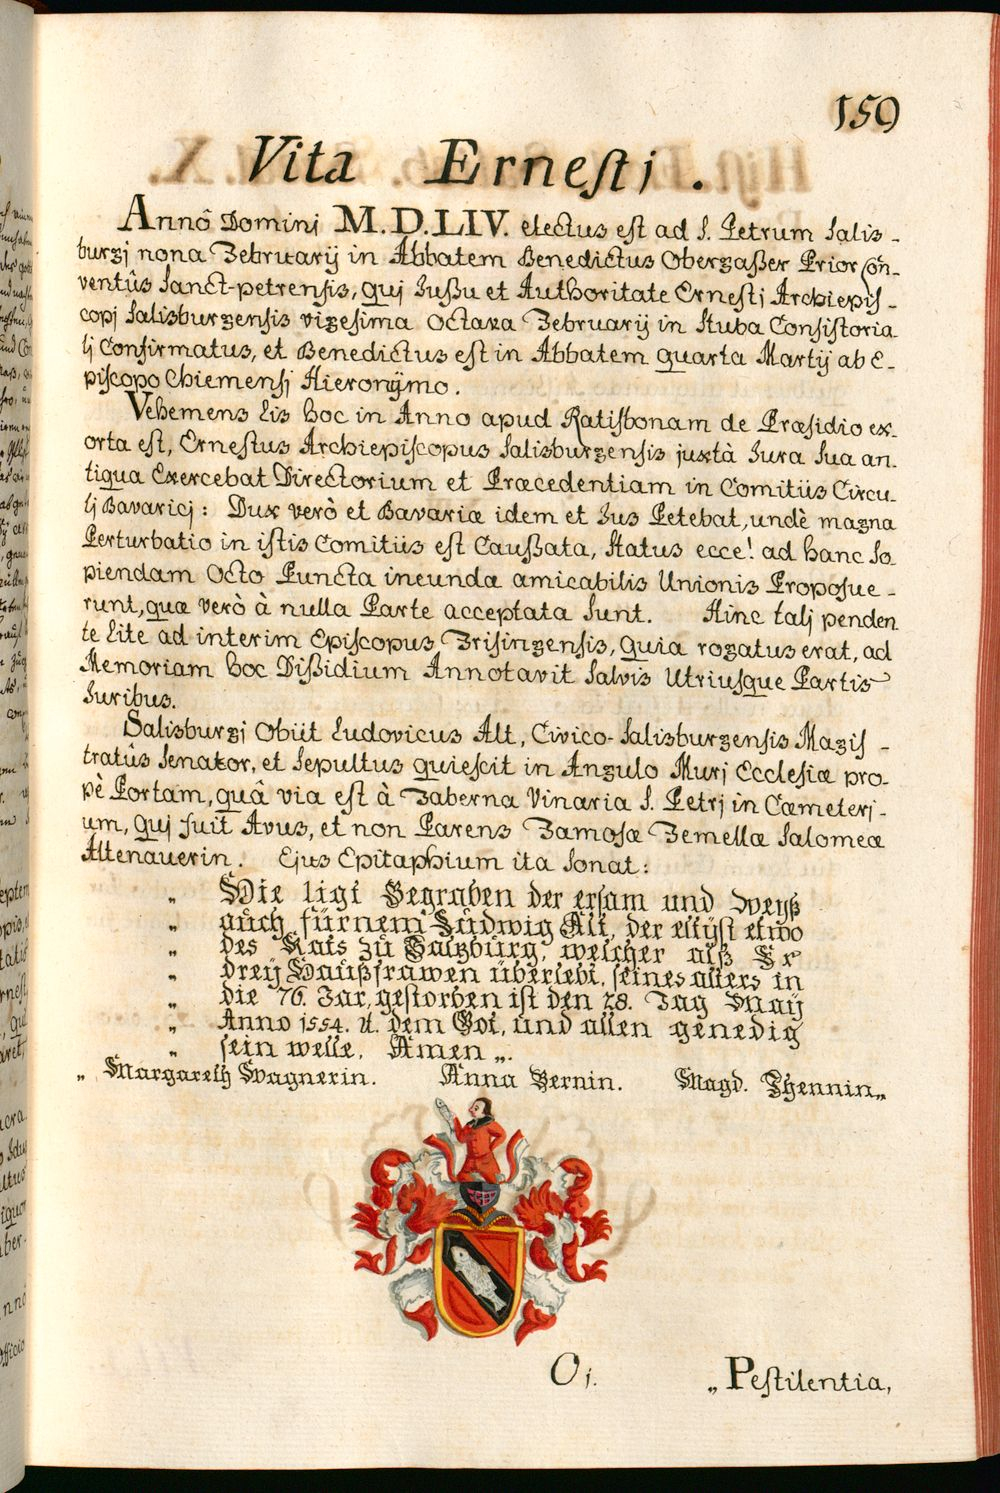 159
Vita Ernestj.
Annô Dominj M.D.LIV. electus est ad S. Petrum Salis-
burgj nona Februarÿ in Abbatem Benedictus Obergaßer Prior Con-
ventûs Sanct-petrensis, quj Jußu et Authoritate Ernestj Archiepis-
copj Salisburgensis vigesima octava Februarÿ in Stuba Consistoria
lj Confirmatus, et Benedictus est in Abbatem quarta Martÿ ab E-
piscopo Chiemensj Hieronÿmo.
Vehemens Lis hoc in Anno apud Ratisbonam de Præsidio ex-
orta est, Ernestus Archiepiscopus Salisburgensis juxtà Jura Sua an-
tiqua Exercebat Directorium et Præcedentiam in Comitiis Circu-
lj Bavaricj: Dux verò et Bavariæ idem et Jus Petebat, undè magna
Perturbatio in istis Comitiis est Caußata, Status ecce! ad hanc So
piendam Octo Puncta ineunda amicabilis Unionis Proposue-
runt, quæ verò à nulla Parte acceptata Sunt. Hinc talj penden
te Lite ad interim Episcopus Frisingensis, quia rogatus erat, ad
Memoriam hoc Dißidium Annotavit Salvis Utriusque Partis
Juribus.
Salisburgj Obiit Ludovicus Alt, Civico-Salisburgensis Magis-
tratûs Senator, et Sepultus quiescit in Angulo Murj Ecclesiæ pro-
pè Portam, quâ via est à Taberna Vinaria S. Petrj in Cæmeterj-
um, quj fuit Avus, et non Parens Famosæ Femellæ Salomeæ
Altenauerin. Ejus Epitaphium ita Sonat:
„ Hie ligt Begraben der ersam und Weyß
„ auch fürnem Ludwig Alt, der eltyst etwo
„ des Rats zu Saltzburg, welcher alß Er
„ dreÿ Haußfrawen überlebt, seines alters in
„ die 76. Jar, gestorben ist den 28. Tag Maÿ
„ Anno 1554. U. dem Got, und allen genedig
„ sein welle. Amen „.
„ Margareth Wagnerin. Anna Bernin. Magd. Thennin„
O j. „ Pestilentia,